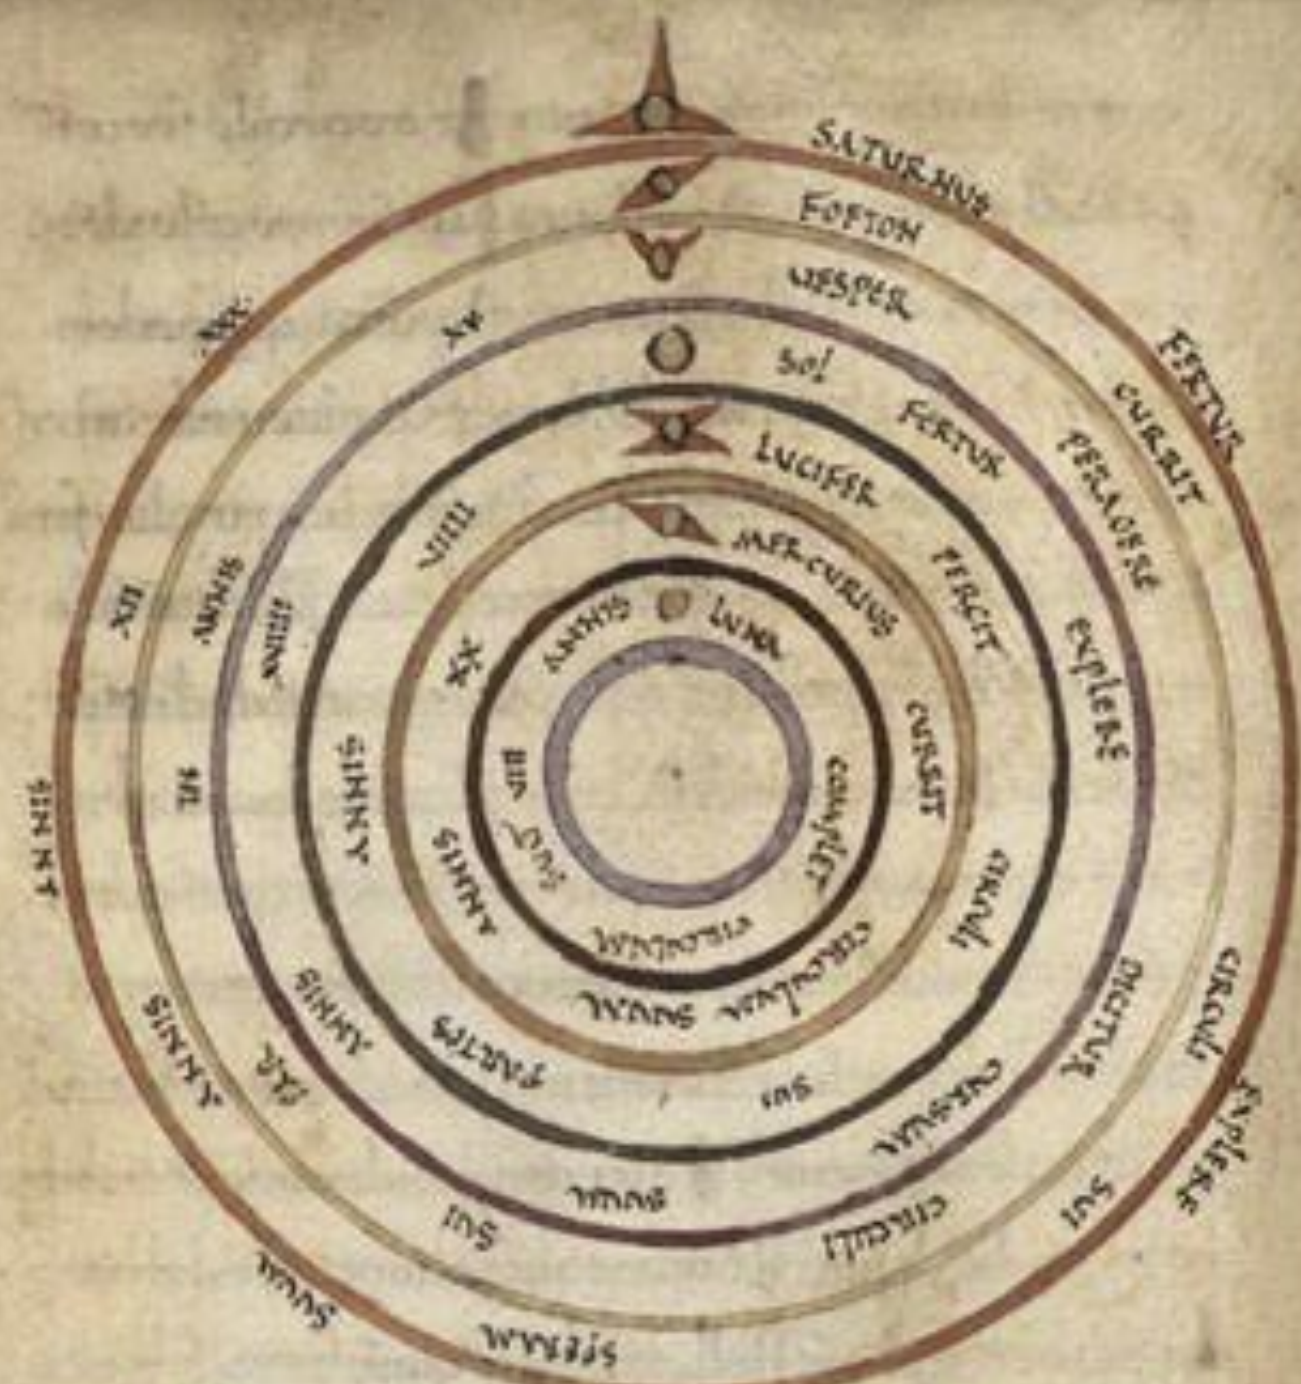 SATURNUS FERTUR EXPLERE SUUM ANNIS XXX
FOFTON CURRIT CIRCULI SUI SPERAM ANNIS XII
UESPER PERAGERE DICITUR CIRCULI SUI PAR ANNIS XV
SOL FERTUR EXPLERE CURSUM SUUM ANNIS
LUCIFER PERGIT CIRCULI SUI PARTES ANNIS VIIII
MERCURIUS CURRIT CIRCULUM SUUM ANNIS XX
LUNA COMPLET CIRCULUM SUUM VIII ANNIS